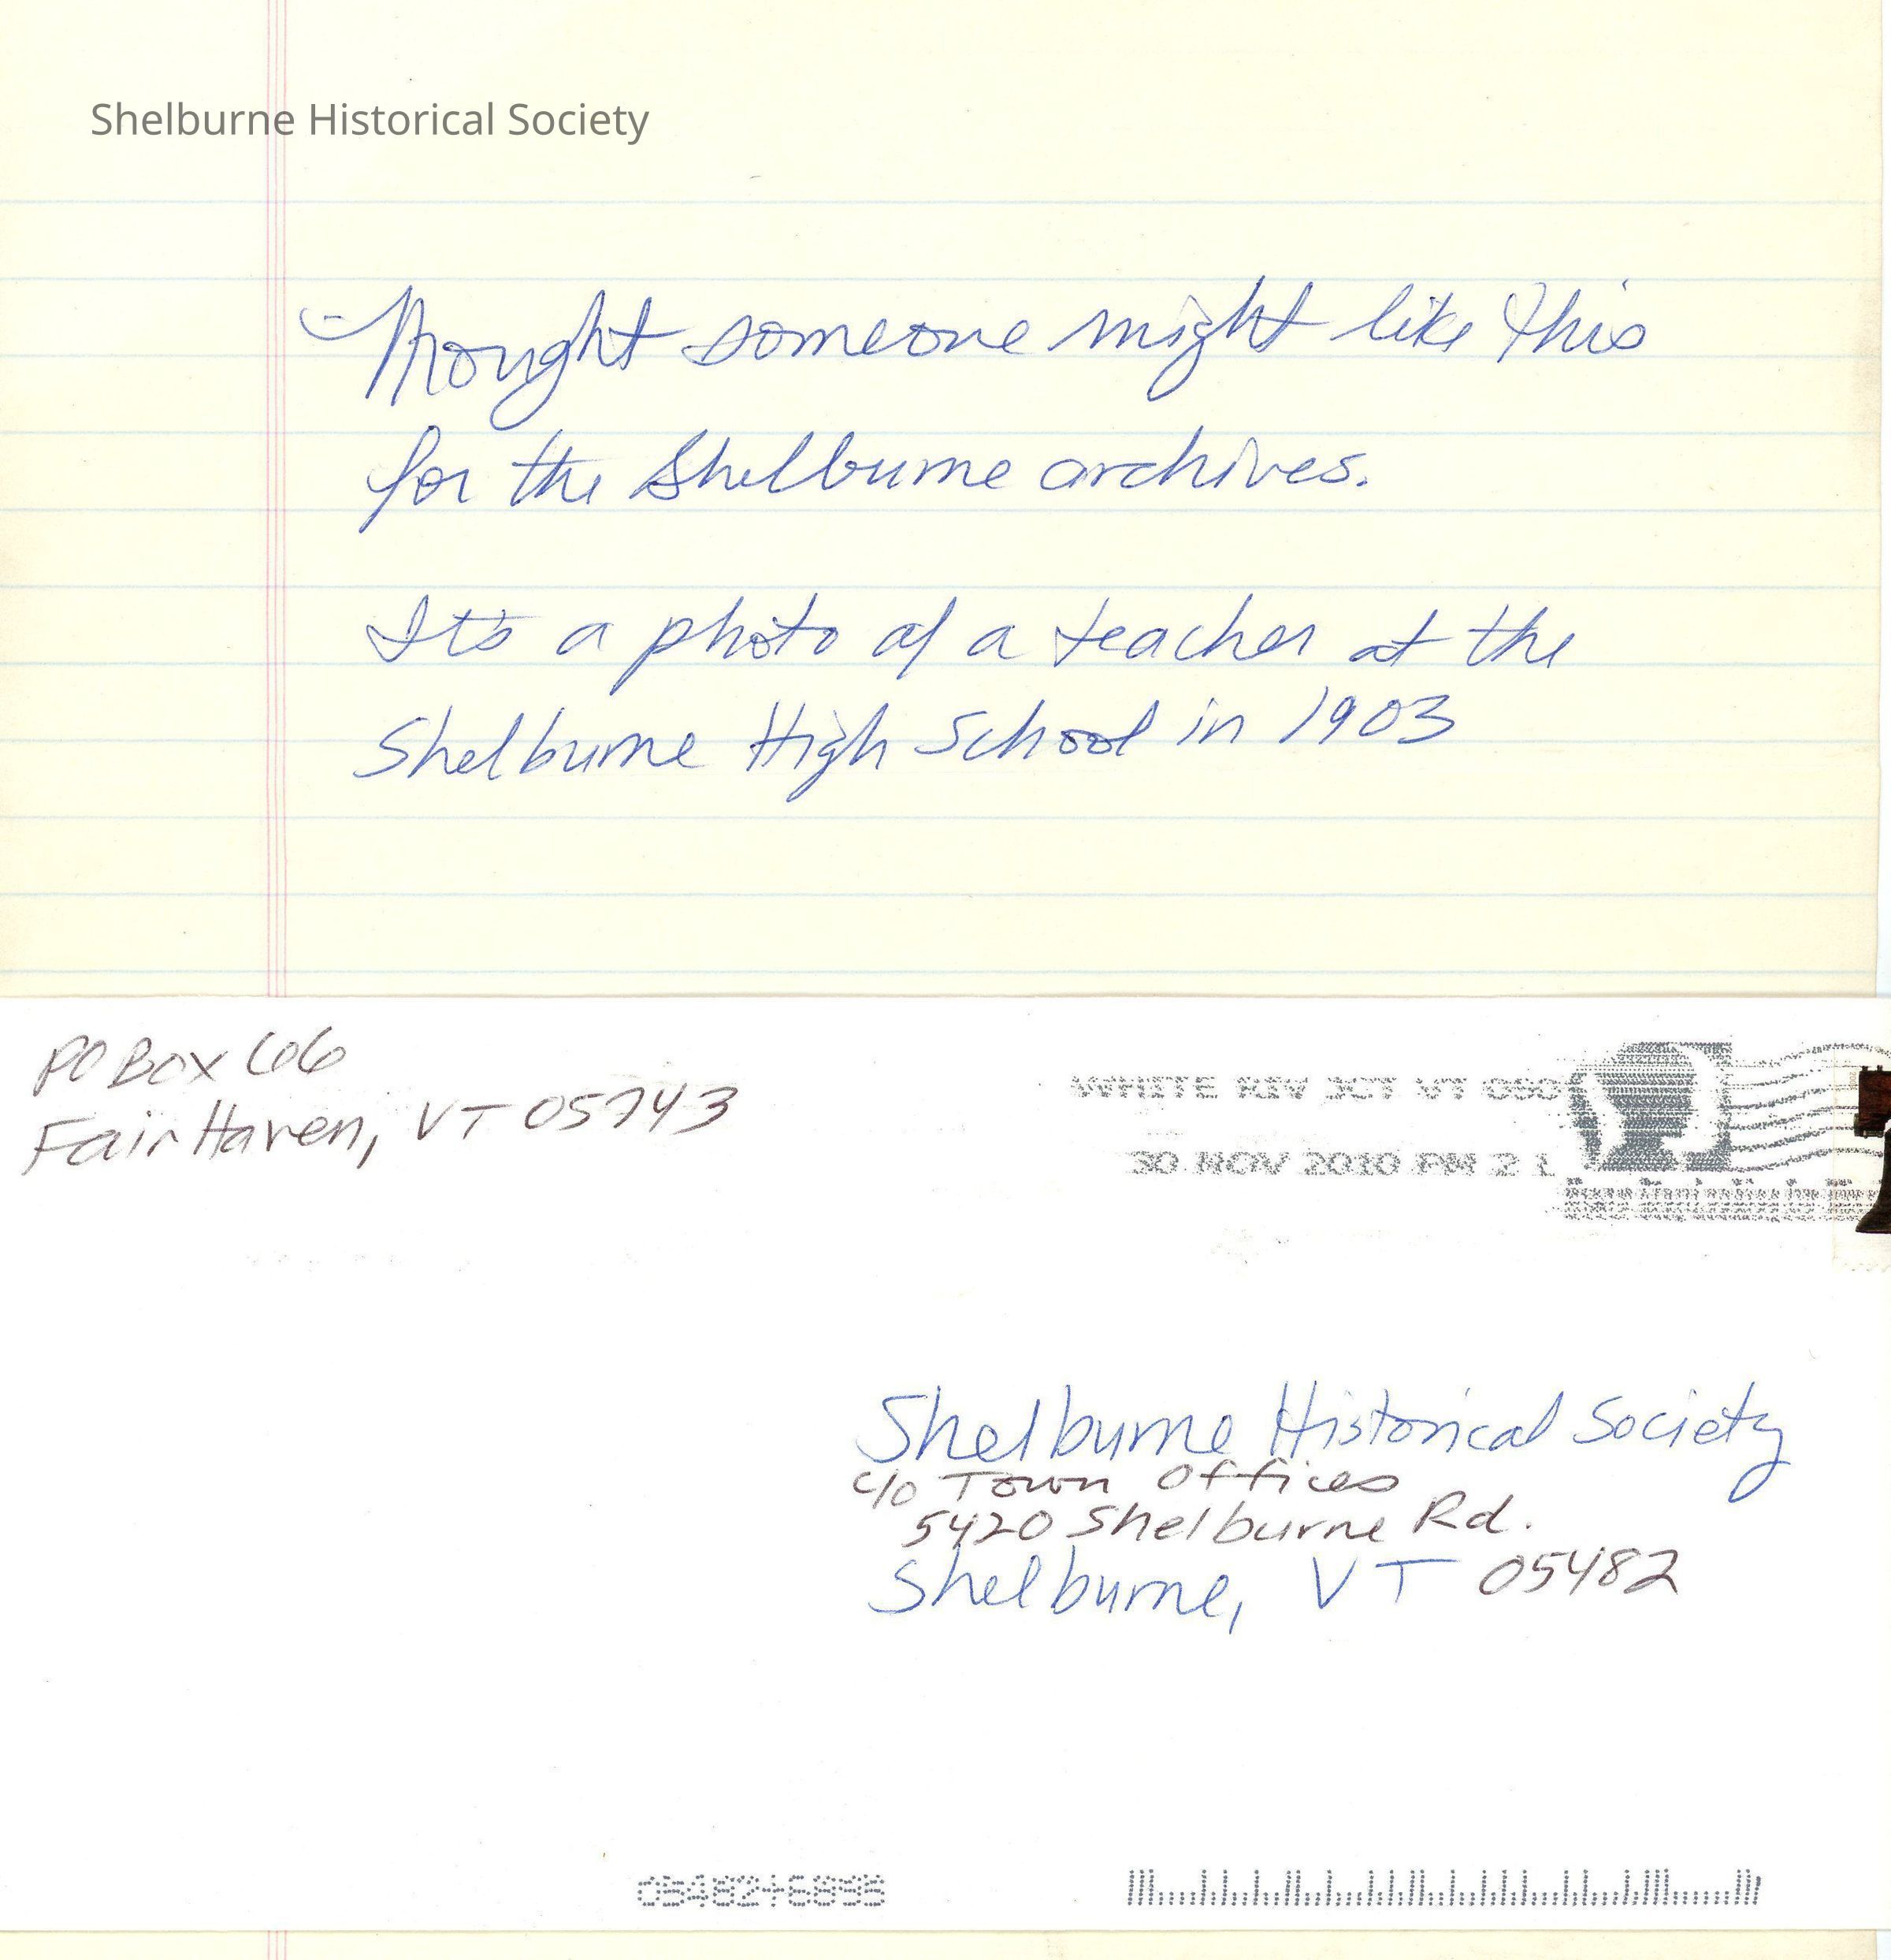 Shelburne Historical Society
Thought someone might like this
for the Shelburne archives.
It's a photo of a teacher at the
Shelburne High School in 1903
PO Box 606
Fair Haven, VT 05743
WHITE RIV JCT VT 050
30 NOV 2010 PM 2 L
Shelburne Historical Society
c/o Town Offices
5420 Shelburne Rd.
Shelburne, VT 05482
05482+6895